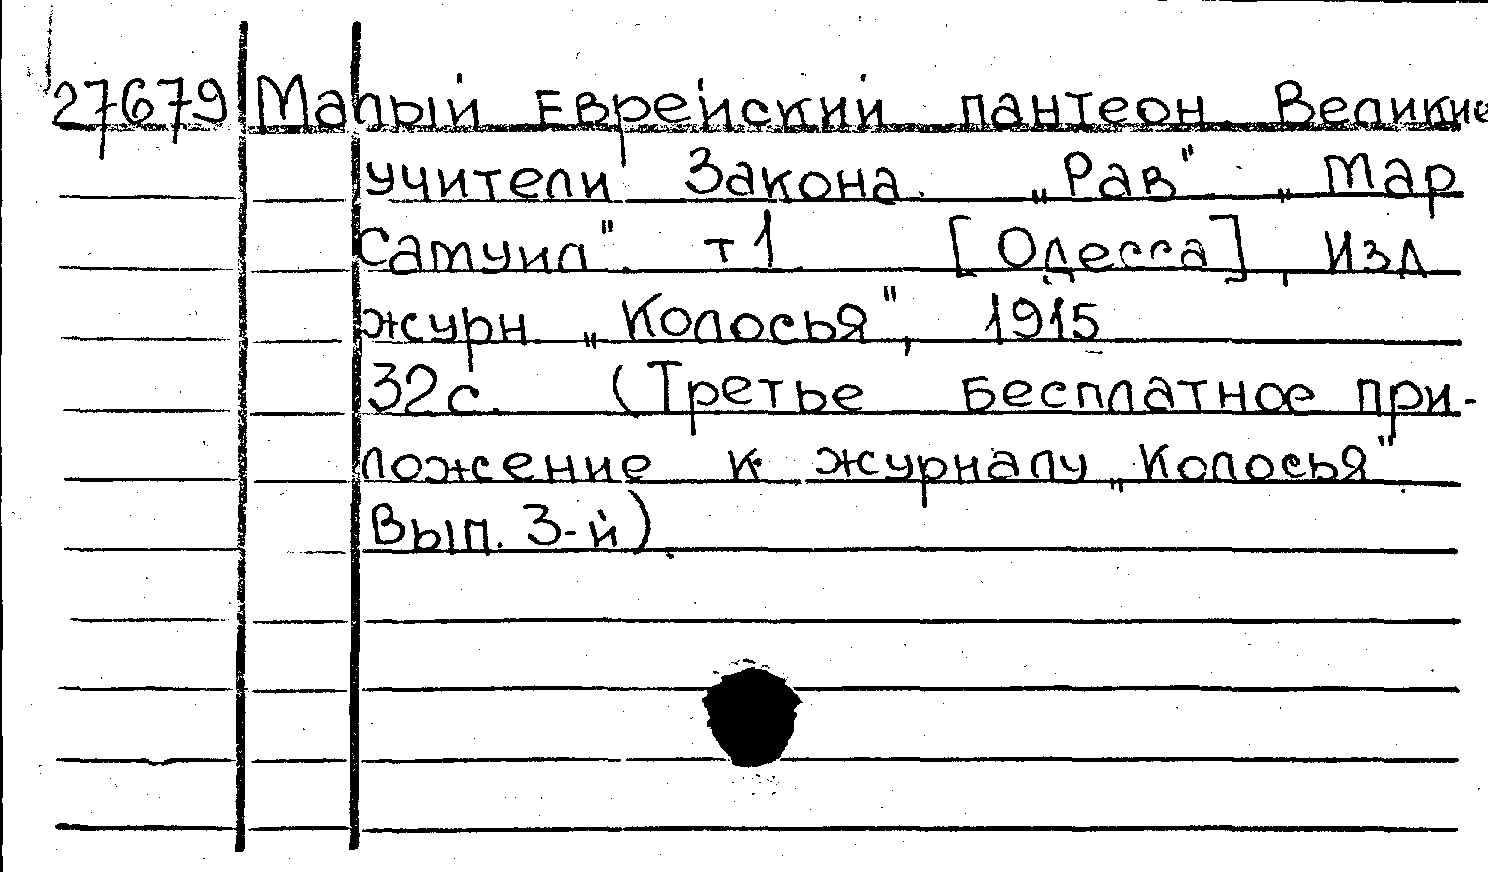 27679 Малый Еврейский пантеон. Великие
учители Закона. „Рав". „Мар
Самуил". т 1 [Одесса], Изд
журн. „Колосья", 1915
32 с. (Третье бесплатное при-
ложение к журналу „Колосья".
Вып. 3-й).